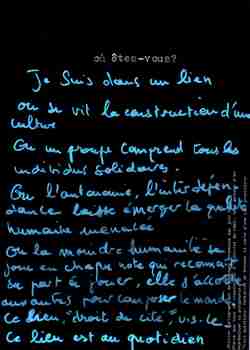 où êtes-vous?
Je suis dans un lien
ou se vit la construction d'une
culture
Ou un groupe comprend tous les
individus solidaires.
Ou l'autonomie, l'interdépen
dance laisse émerger la qualité
humaine menacée
Ou la moindre humanité se
joue en chaque note qui reconnait
sa part à jouer, elle s'accorde
aux autres pour composer le monde
Ce lien "droit de cité", vis le
Ce lien est au quotidien